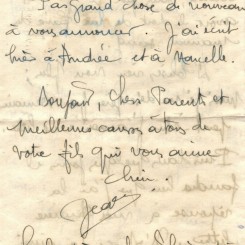 Pas grand chose de nouveau
à vous annoncer. J'ai écrit
hier à Andrée et à Marcelle.
Bonsoir, chers Parents et
meilleures caresses à tous de
votre fils qui vous aime
bien.
Jean